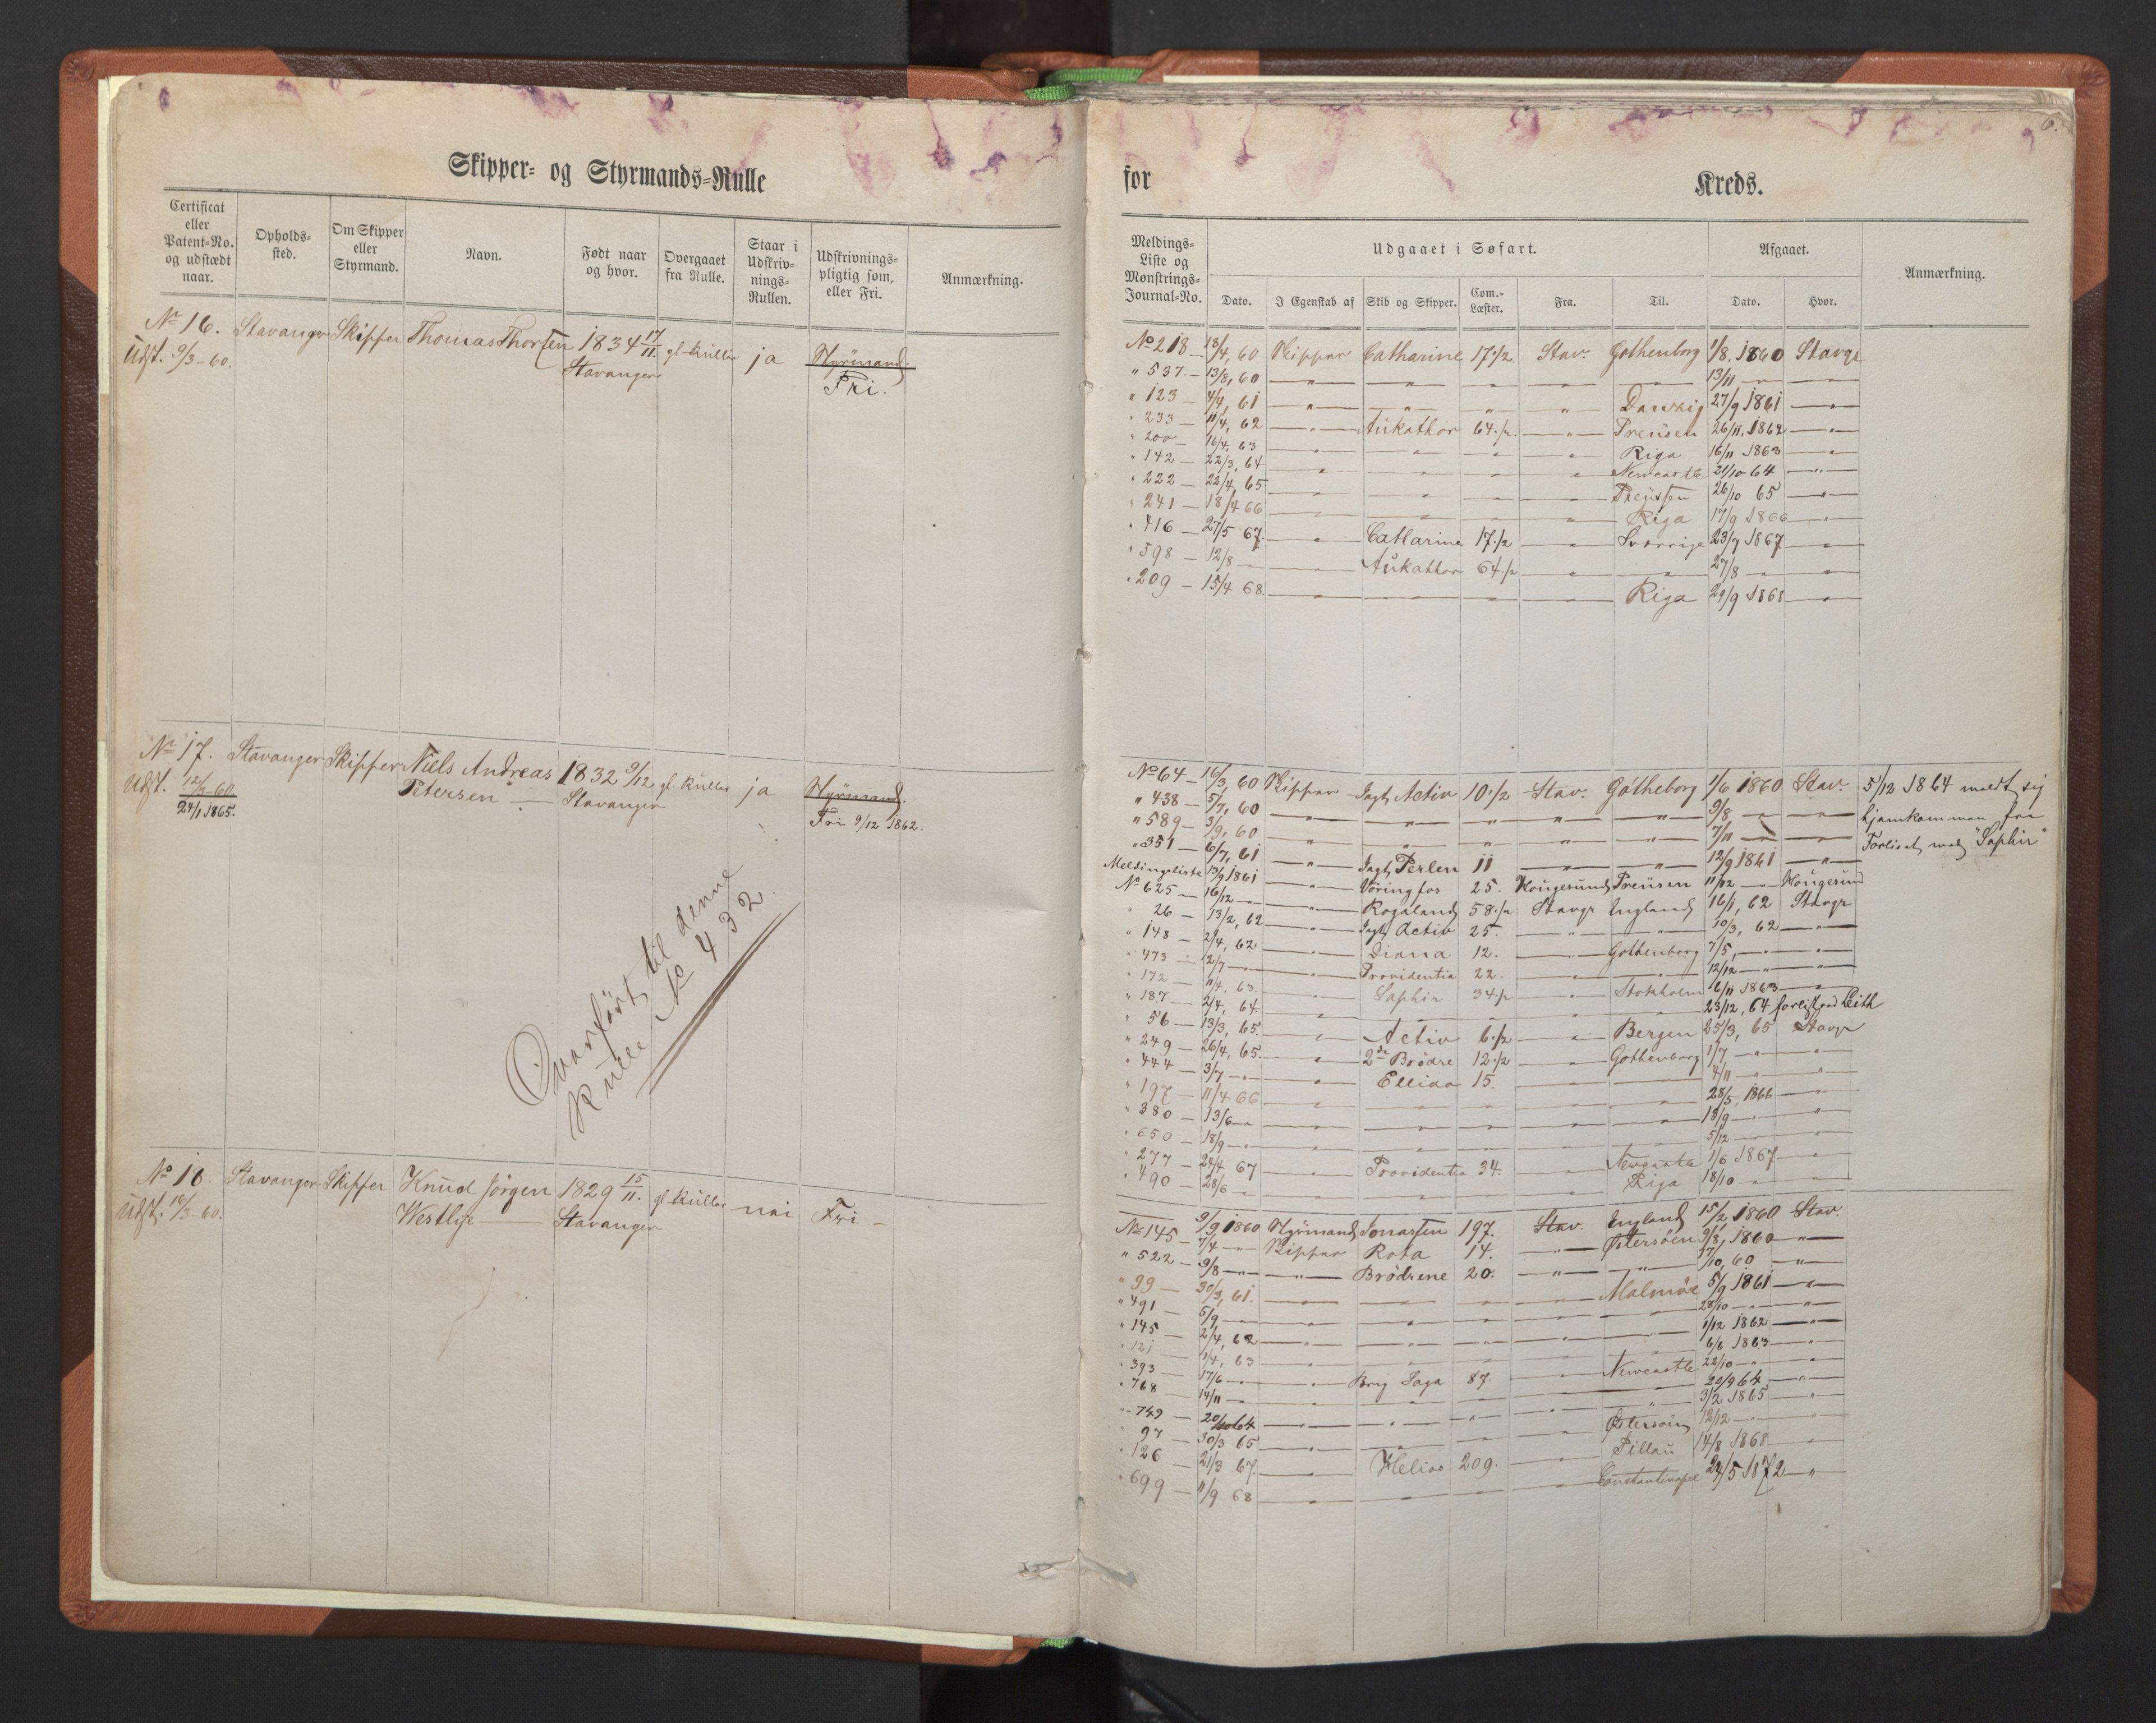 Skipper- og Styrmands-Rulle
Certificat eller Patent-No. og udstædt naar.
Opholds-sted.
Om Skipper eller Styrmand.
Navn.
Født naar og hvor.
Overgaaet fra Rulle.
Staar i Udskriv-nings-Rullen.
Udskrivnings-pligtig som, eller Fri.
Anmærkning.
No 16. Stavanger Skipper Thomas Thorsen 1834 17/11. gl. Rulle ja Styrmand
Udst. 9/3-60. Stavanger Fri.
No 17. Stavanger Skipper Niels Andreas 1832 9/12 gl. Rulle ja Styrmand.
Udst. 12/3-60 Petersen Stavanger Fri 9/12 1862.
24/1 1865.
Overført til denne
Rulle No 432.
No 18. Stavanger Skipper Knud Jörgen 1829 15/11. gl. Rulle nei Fri
Udst. 19/3-60. Westlye Stavanger
for Kreds.
6.
Meldings-Liste og Mønstrings-Journal-No.
Udgaaet i Søfart.
Afgaaet.
Anmærkning.
Dato.
I Egenskab af
Skib og Skipper.
Com.-Læster.
Fra.
Til.
Dato.
Hvor.
No 218 13/4, 60 Skipper Catharine 17 1/2 Stav. Gothenborg 1/8. 1860 Stavgr
" 537 - 13/8, 60 " " " " " 13/11 " "
" 123 - 4/4, 61 " " " " Danzig 27/9 1861 "
" 233 - 11/4, 62 " Aukathor 64 1/2 " Preusen 26/11, 1862 "
" 200 - 16/4, 63 " " " " Riga 16/11 1863 "
" 142 - 22/3, 64 " " " " Newcastle 21/10 64 "
" 222 - 22/4, 65 " " " " Preussen 26/10 65 "
" 241 - 18/4 66 " " " " Riga 17/9 1866 "
" 416 - 27/5 67. " Catharine 17 1/2 " Sverrige 23/7 1867 "
" 598 - 12/8 " " Aukathor 64 1/2 " " 27/8 " "
" 209 - 15/4 68. " " " " Riga 29/9 1868 "
No 64 - 16/3, 60 Skipper Jagt Activ 10 1/2 Stav. Götheborg 1/6 1860 Stav. 5/12 1864 meldt sig
" 438 - 5/7, 60 " " " " " 9/8 " " hjemkommen fra
" 589 - 3/9, 60 " " " " " 7/11 " " Forliset med "Saphir"
" 351 - 6/7, 61 " Jagt Perlen 11 " " 12/9 1861 "
Meldingsliste 13/9 1861 " Vöringfos 25. Hougesund Preusen 11/12 " Hougesund
No 625 - 16/12 " " Rogaland 58 1/2 Stavgr England 16/1, 62 Stavgr
" 26 - 13/2, 62 " Jagt Activ 25. " " 10/3, 62 "
" 148 - 2/4, 62 " Diana 12. " Gothenborg 7/5, " "
" 473 - 12/7 " " Providentia 22. " " 12/12 " "
" 172 - 11/4, 63. " Saphir 34 1/2 " Stokholm 6/11 1863 "
" 187 - 2/4, 64. " " " " " 23/12, 64 forlist ved Leith
" 56 - 13/3, 65. " Activ 6 1/2 " Bergen 25/3, 65 Stavgr
" 249 - 26/4, 65. " 2de Brödre 12 1/2 " Gothenborg 1/7 " "
" 444 - 3/7 " " Ellida 15. " " 4/11 " "
" 197 - 11/4 66 " " " " " 28/5, 1866 "
" 380 - 13/6 " " " " " " 18/9 " "
" 650 - 18/9 " " " " " " 5/12 " "
" 277 - 24/4 67 " Providentia 34. " Newcastle 1/6 1867 "
" 490 - 28/6 " " " " " Riga 18/10 " "
9/9 1860 Styrmand Jonassen 197. Stav. England 15/2 1860 Stav.
No 145 - 7/4 " Skipper Rota 14. " Østersöen 9/8, 1860 "
" 522 - 9/8 " " Brödrene 20. " " 17/10, 60 "
" 99 - 30/3, 61. " " " " Malmöe 5/9 1861 "
" 491 - 5/9 " " " " " " 28/10 " "
" 145 - 2/4, 62 " " " " " 1/12 1862 "
" 121 - 1/4, 63 " " " " " 6/6 1863 "
" 393 - 17/6 " " Brig Saga 87. " Newcastle 22/10 " "
" 768 - 14/11 " " " " " " 20/9 64 "
" 749 - 20/10 64 " " " " " 3/2 1865 "
" 97 - 30/3 65 " " " " Østersöen 12/12 " "
" 126 - 21/3 67. " Helios 209. " Pillau 14/8 1868 "
" 699 - 11/9 68 " " " " Constantinopel 24/5 1872 "